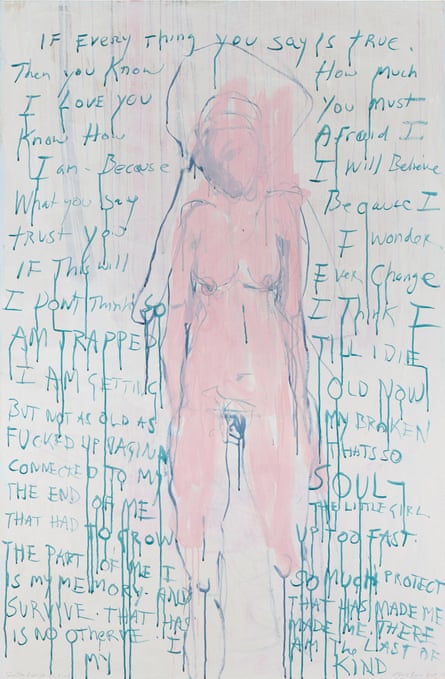 IF EVERY THING YOU SAY IS TRUE.
Then you Know How much
I LOVE YOU You must
Know How Afraid I
I am - Because I Will Believe
What you Say Because I
trust you I wonder
IF This will Ever Change
I DONT Think so I Think I
AM TRAPPED TILL I DIE
I AM GETTING OLD NOW
BUT NOT AS OLD AS MY BRAKEN
FUCKED UP VAGINA THATS SO
CONNECTED TO MY SOUL -
THE END OF ME THE LITTLE GIRL
THAT HAD TO GROW UP TOO FAST.
THE PART OF ME I SO MUCH PROTECT
IS MY MEMORY. AND THAT HAS MADE ME
SURVIVE. THAT HAS MADE ME. THERE
IS NO I AM The LAST OF
MY KIND